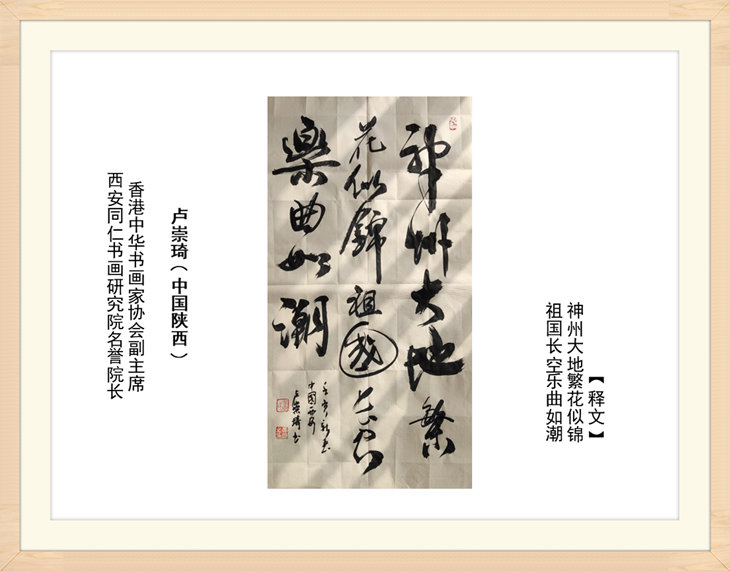 【释文】
神州大地繁花似锦
祖国长空乐曲如潮
神州大地繁
花似锦祖國长空
樂曲如潮
中國西安
卢崇琦书
卢崇琦（中国陕西）
香港中华书画家协会副主席
西安同仁书画研究院名誉院长